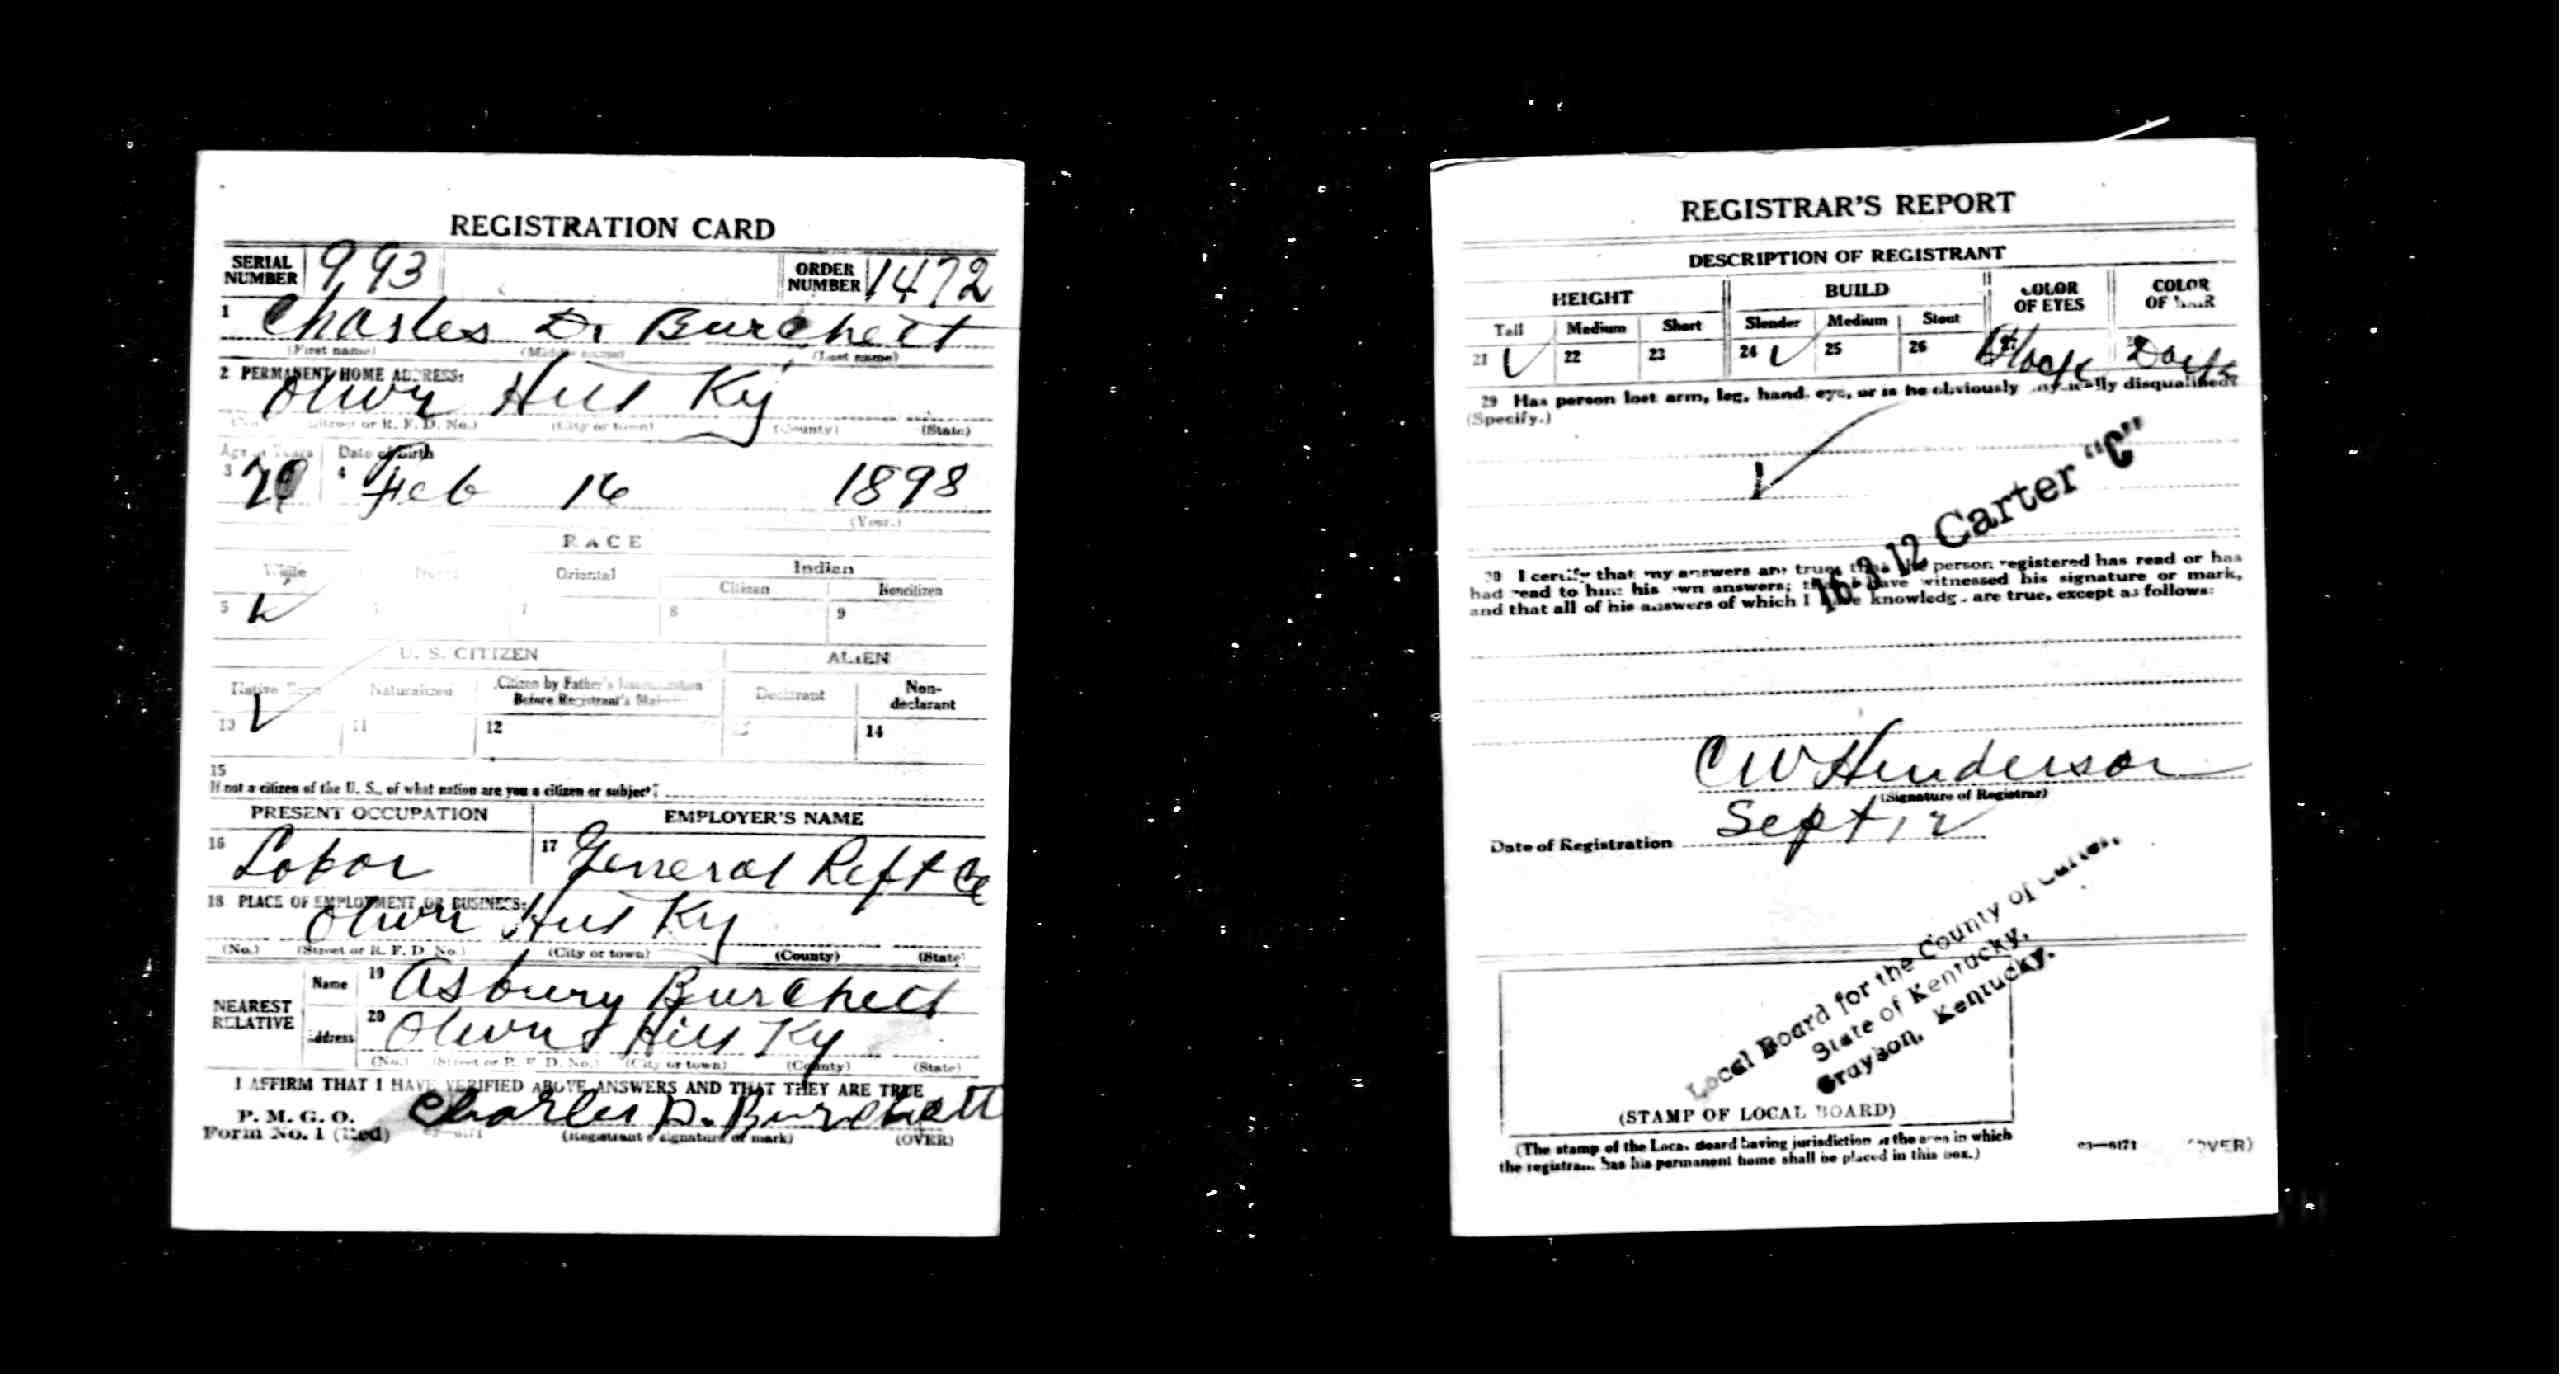 REGISTRATION CARD
SERIAL NUMBER 993 ORDER NUMBER 1472
1 Charles D. Burchett
(First name) (Middle name) (Last name)
2 PERMANENT HOME ADDRESS:
Olive Hill Ky
(No.) (Street or R. F. D. No.) (City or town) (County) (State)
Age in Years Date of Birth
3 20 4 Feb 16 1898
(Year.)
RACE
White Oriental Indian
Citizen Noncitizen
5 ✓ 7 8 9
U. S. CITIZEN ALIEN
Native Born Naturalized Citizen by Father's Naturalization Before Registrant's Declarant Non-declarant
10 ✓ 11 12 14
15
If not a citizen of the U. S., of what nation are you a citizen or subject?
PRESENT OCCUPATION EMPLOYER'S NAME
16 Labor 17 General Reft Co
18 PLACE OF EMPLOYMENT OR BUSINESS:
Olive Hill Ky
(No.) (Street or R. F. D. No.) (City or town) (County) (State)
NEAREST RELATIVE Name 19 Asbury Burchett
Address 20 Olive Hill Ky
(No.) (Street or R. F. D. No.) (City or town) (County) (State)
I AFFIRM THAT I HAVE VERIFIED ABOVE ANSWERS AND THAT THEY ARE TRUE
P. M. G. O.
Form No. 1 (Red) Charles D. Burchett
(Registrant's signature or mark) (OVER)
REGISTRAR'S REPORT
DESCRIPTION OF REGISTRANT
HEIGHT BUILD COLOR OF EYES COLOR OF HAIR
Tall Medium Short Slender Medium Stout
21 ✓ 22 23 24 ✓ 25 26 27 Black 28 Dark
29 Has person lost arm, leg, hand, eye, or is he obviously physically disqualified?
(Specify.)
✓
16-3-12 Carter "C"
30 I certify that my answers are true; that the person registered has read or has
had read to him his own answers; that I have witnessed his signature or mark,
and that all of his answers of which I have knowledge are true, except as follows:
C W Henderson
(Signature of Registrar)
Date of Registration Sept 12
Local Board for the County of Carter,
State of Kentucky,
Grayson, Kentucky.
(STAMP OF LOCAL BOARD)
(The stamp of the Local Board having jurisdiction of the area in which
the registrant has his permanent home shall be placed in this box.)
03—6171 (OVER)